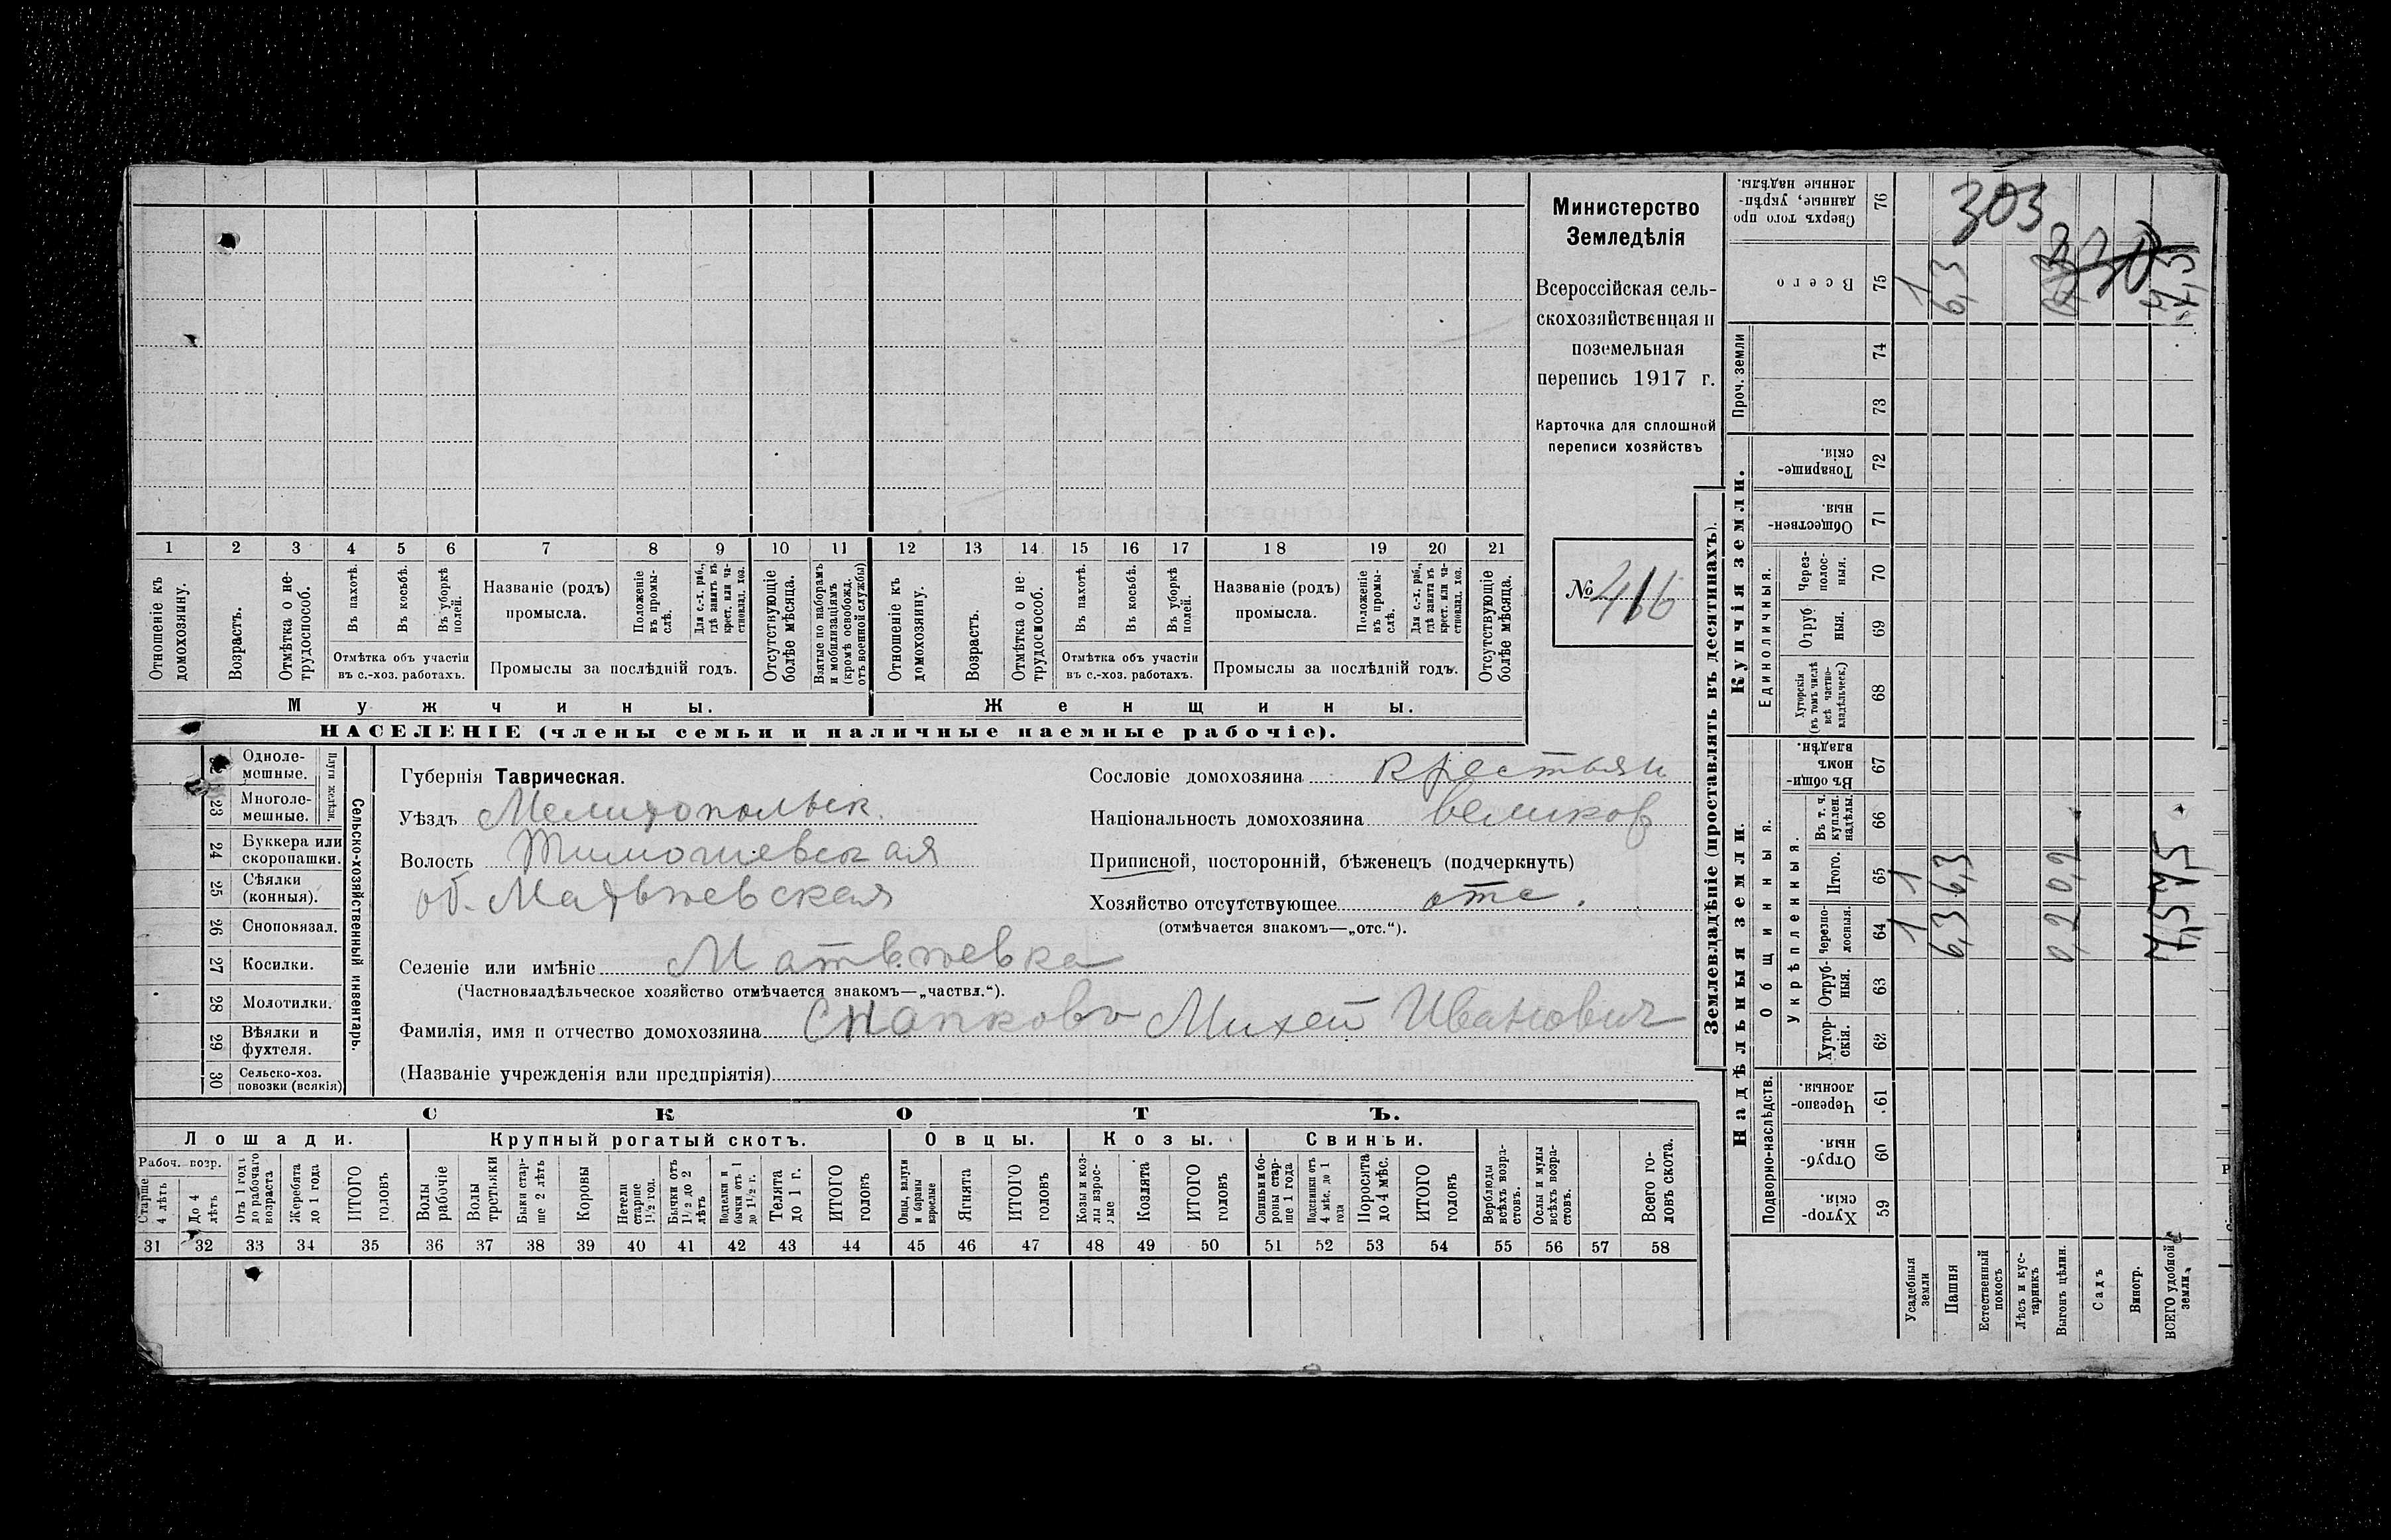 Министерство
Земледѣлія
Всероссійская сель-
скохозяйственная и
поземельная
перепись 1917 г.
Карточка для сплошной
переписи хозяйствъ
№ 416
1 2 3 4 5 6 7 8 9 10 11 12 13 14 15 16 17 18 19 20 21
Отношеніе къ домохозяину.
Возрастъ.
Отмѣтка о не-трудоспособ.
Въ пахотѣ.
Въ косьбѣ.
Въ уборкѣ полей.
Отмѣтка объ участіи
въ с.-хоз. работахъ.
Названіе (родъ)
промысла.
Положеніе въ промы-слѣ.
Для с.-х. раб., гдѣ занятъ въ крест. или ча-стновлад. хоз.
Промыслы за послѣдній годъ.
Отсутствующіе болѣе мѣсяца.
Взятые по наборамъ и мобилизаціямъ (кромѣ освобожд. отъ военной службы)
Отношеніе къ домохозяину.
Возрастъ.
Отмѣтка о не-трудоспособ.
Въ пахотѣ.
Въ косьбѣ.
Въ уборкѣ полей.
Отмѣтка объ участіи
въ с.-хоз. работахъ.
Названіе (родъ)
промысла.
Положеніе въ промы-слѣ.
Для с.-х. раб., гдѣ занята въ крест. или ча-стновлад. хоз.
Промыслы за послѣдній годъ.
Отсутствующіе болѣе мѣсяца.
Мужчины.
Женщины.
НАСЕЛЕНІЕ (члены семьи и наличные наемные рабочіе).
Сельско-хозяйственный инвентарь.
Плуги желѣзн.
Одноле-мешные.
23 Многоле-мешные.
24 Буккера или скоропашки.
25 Сѣялки (конныя).
26 Сноповязал.
27 Косилки.
28 Молотилки.
29 Вѣялки и фухтеля.
30 Сельско-хоз. повозки (всякія)
Губернія Таврическая.
Уѣздъ Мелитопольск.
Волость Тимошевская
об. Матвѣевская
Селеніе или имѣніе Матвѣевка
(Частновладѣльческое хозяйство отмѣчается знакомъ—„частвл.“).
Фамилія, имя и отчество домохозяина Михей Иванович
(Названіе учрежденія или предпріятія)
Сословіе домохозяина крестьян
Національность домохозяина великор
Приписной, посторонній, бѣженецъ (подчеркнуть)
Хозяйство отсутствующее отс.
(отмѣчается знакомъ—„отс.“).
СКОТЪ.
Лошади.
Крупный рогатый скотъ.
Овцы.
Козы.
Свиньи.
Рабоч. возр.
Старше 4 лѣтъ
До 4 лѣтъ
Отъ 1 года до рабочаго возраста
Жеребята до 1 года
ИТОГО головъ
Волы рабочіе
Волы третьяки
Быки стар-ше 2 лѣтъ
Коровы
Нетели старше 1½ год.
Бычки отъ 1½ до 2 лѣтъ
Подтелки и бычки отъ 1 до 1½ г.
Телята до 1 г.
ИТОГО головъ
Овцы, валухи и бараны взрослые
Ягнята
ИТОГО головъ
Козы и коз-лы взрос-лые
Козлята
ИТОГО головъ
Свиньи и бо-ровы стар-ше 1 года
Подсвинки отъ 4 мѣс. до 1 года
Поросята до 4 мѣс.
ИТОГО головъ
Верблюды всѣхъ возра-стовъ.
Ослы и мулы всѣхъ возра-стовъ.
Всего го-ловъ скота.
31 32 33 34 35 36 37 38 39 40 41 42 43 44 45 46 47 48 49 50 51 52 53 54 55 56 57 58
Землевладѣніе (проставлять въ десятинахъ).
Надѣльныя земли.
Купчія земли.
Проч. земли
Подворно-наслѣдств.
Общинныя.
Укрѣпленныя.
Единоличныя.
Хутор-скія. 59
Отруб-ныя. 60
Черезпо-лосныя. 61
Хутор-скія. 62
Отруб-ныя. 63
Черезпо-лосныя. 64
Итого. 65
Въ т. ч. куплен. надѣлы. 66
Въ общин-номъ владѣн. 67
Хуторскія (въ томъ числѣ всѣ частно-владѣльческ.) 68
Отруб-ныя. 69
Через-полос-ныя. 70
Обществен-ныя. 71
Товарище-скія. 72
73
74
Всего 75
Сверхъ того про-данные, укрѣп-ленные надѣлы. 76
Усадебныя земли 1 1 1
Пашня 6,3 6,3 6,3
Естественный покосъ
Лѣсъ и кус-тарникъ
Выгонъ цѣлин. 0,2 0,2
Садъ
Виногр.
ВСЕГО удобной земли.
303